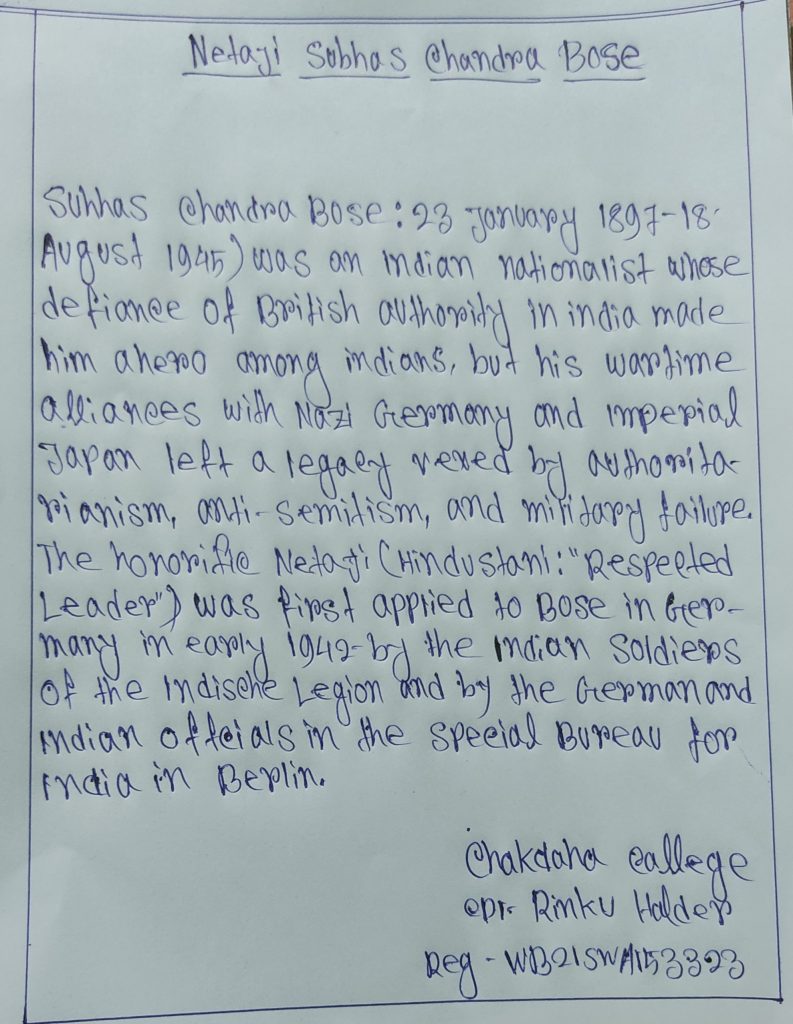 Netaji Subhas Chandra Bose
Suhhas Chandra Bose: 23 January 1897-18
August 1945) was an indian nationalist whose
defiance of British authority in india made
him ahero among indians, but his wartime
alliances with Nazi Germany and imperial
Japan left a legacy vexed by authorita-
rianism, anti-semitism, and military failure.
The honorific Netaji (Hindustani: "Respected
Leader") was first applied to Bose in Ger-
many in early 1942-by the indian soldiers
of the indische Legion and by the German and
indian offcials in the special Bureau for
india in Berlin.
Chakdaha callege
cpr- Rinku Halder
Reg - WB21SWA153323